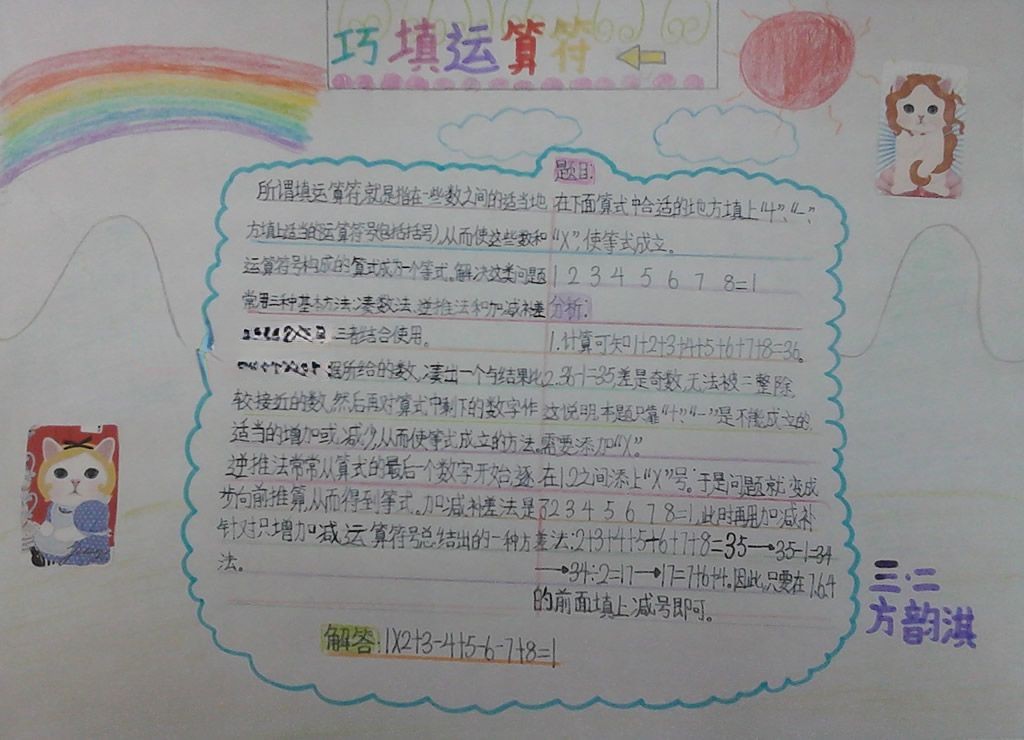 巧填运算符
题目:
所谓填运算符,就是指在一些数之间的适当地
方填上适当的运算符号(包括括号),从而使这些数和
运算符号构成的算式成为一个等式。解决这类问题
常用三种基本方法:凑数法、逆推法和加减补差
三者结合使用。
所给的数,凑出一个与结果比
较接近的数,然后再对算式中剩下的数字作
适当的增加或减少,从而使等式成立的方法。
逆推法常常从算式的最后一个数字开始,逐
步向前推算,从而得到等式。加减补差法是
针对只增加减运算符号总结出的一种方
法。
在下面算式中合适的地方填上“+”、“-”、
“X”使等式成立。
1 2 3 4 5 6 7 8=1
分析:
1.计算可知1+2+3+4+5+6+7+8=36。
2.36-1=35,差是奇数,无法被二整除,
这说明,本题只靠“+”、“-”是不能成立的,
需要添加“X”。
在1,2之间添上“X”号。于是问题就变成
了2 3 4 5 6 7 8=1,此时再用加减补
差法:2+3+4+5+6+7+8=35→35-1=34
→34÷2=17→17=7+6+4。因此,只要在7.6.4
的前面填上减号即可。
解答:1X2+3-4+5-6-7+8=1
三·二
方韵淇